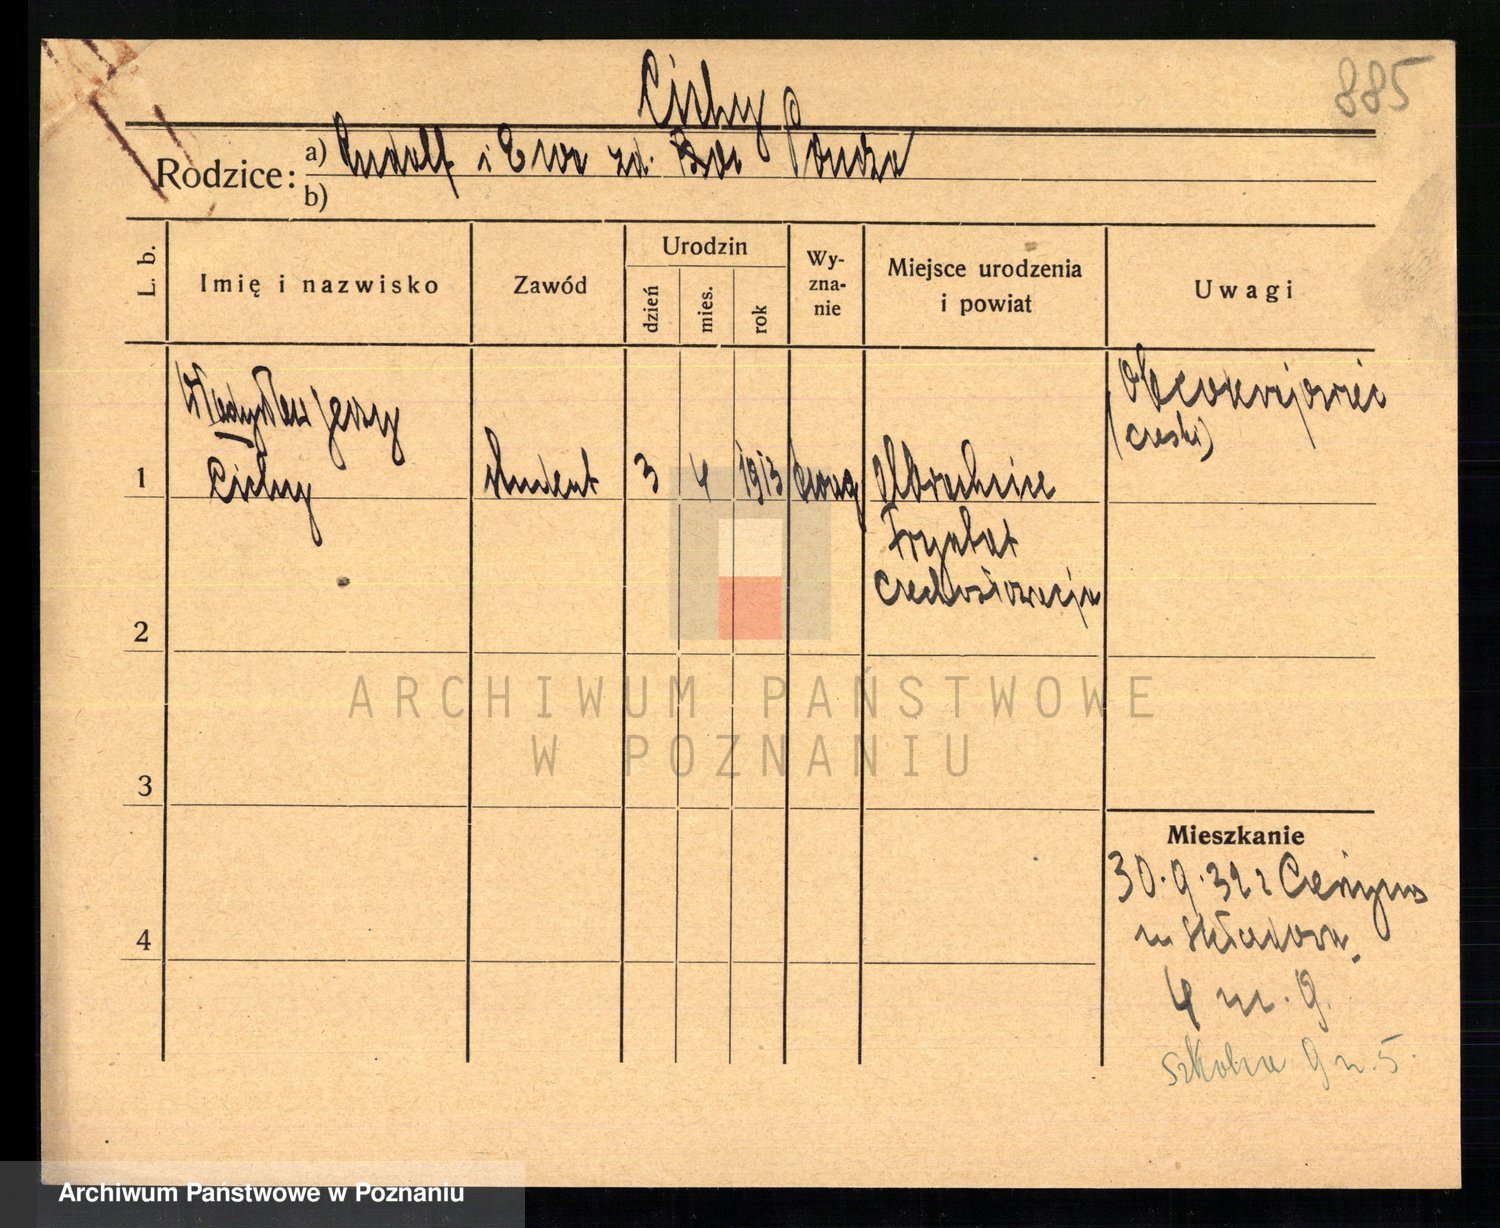 885
Cichy
Rodzice:
a) Rudolf i Ewa zd. Pondza
b)
L. b.
Imię i nazwisko
Zawód
Urodzin
dzień
mies.
rok
Wy-
zna-
nie
Miejsce urodzenia
i powiat
Uwagi
Władysław Jerzy
1 Cichy
student 3 4 1913 ewag
Albrechcice
Frysztat
Czechosłowacja
Obcokrajowiec
(czeski)
2
3
4
Mieszkanie
30.9.32 z Cieszyna
Składowa
4 m. 9.
Szkolna 9 m. 5.
ARCHIWUM PAŃSTWOWE
W POZNANIU
Archiwum Państwowe w Poznaniu